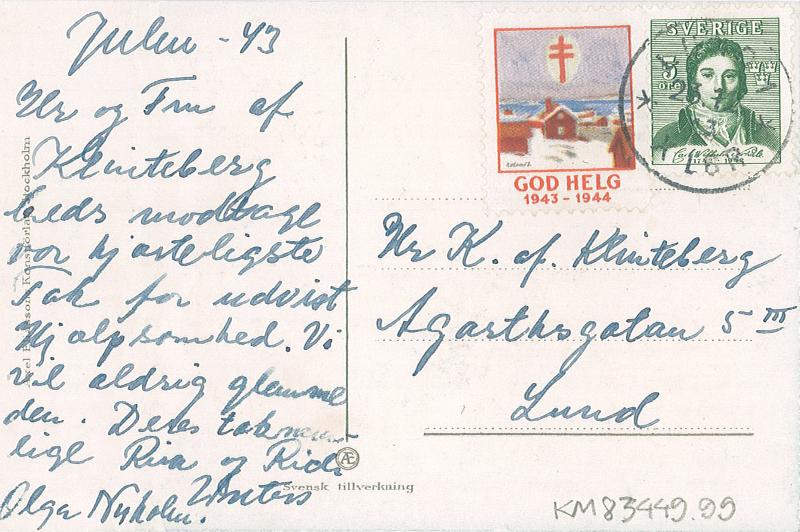 Julen - 43
Hr og Fru af
Klinteberg
bedes modtage
vor hjærteligste
Tak for udvist
Hjælpsomhed. Vi
vil aldrig glemme
den. Deres taknem-
lige Riva og Rich.
Winters
Olga Nyholm.
Axel Eliassons Konstförlag Stockholm
Svensk tillverkning
GOD HELG
1943 - 1944
SVERIGE
5
ÖRE
Hr K. af. Klinteberg
Agarthsgatan 5 III
Lund
KM 83449.99